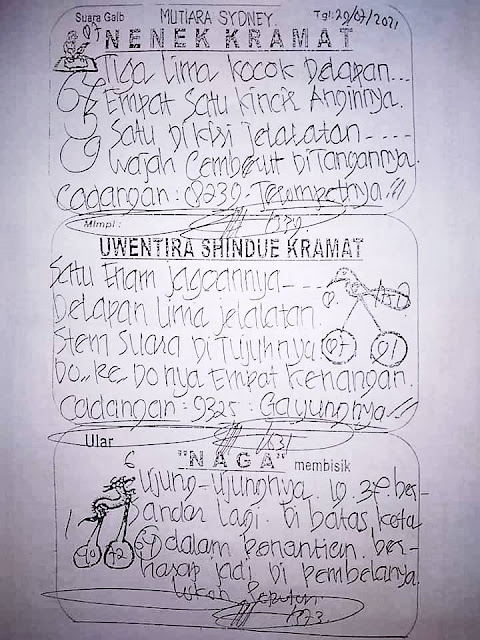 Suara Gaib MUTIARA SYDNEY. Tgl: 29/07/2021
NENEK KRAMAT
Tiga lima kocok Delapan...
Empat Satu kincir Anginnya.
Satu Di kisi jelalatan----
Wajah Cemberut DiTangannya.
Cadangan: 8239-Terompetnya!!!
Mimpi:
UWENTIRA SHINDUE KRAMAT
Satu Enam jagoannya---
Delapan lima jelalatan.
Stem Suara DiTujuhnya
Do..Re..Donya Empat Kenangan.
Cadangan: 9325: Gayungnya!!
Ular
"NAGA" membisik
6
Ujung-ujungnya. ber-
andar Lagi. Di batas kota
dalam Penantian. ber-
harap jadi Di Pembelanya.